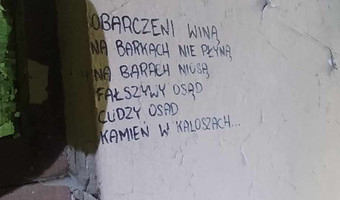 OBARCZENI WINĄ
NA BARKACH NIE PŁYNĄ
NA BARACH NIOSĄ
FAŁSZYWY OSĄD
CUDZY OSAD
KAMIEŃ W KALOSZACH...